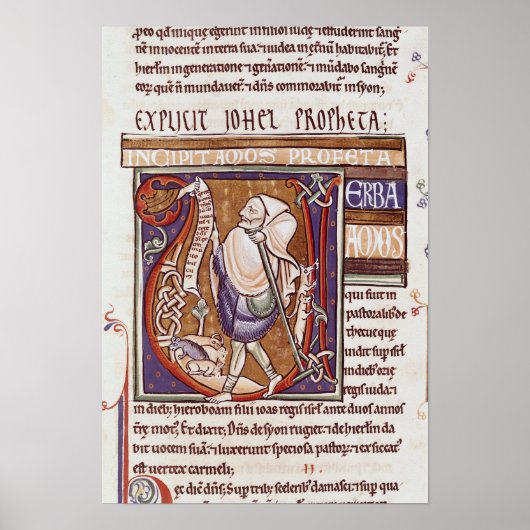 pro iniquitate egerint in filios iuda: ⁊ effuderint sang
nē innocentē in terra sua: ⁊ iudea in et̄nū habitabit̄: ⁊
hierlm̄ in generatione ⁊ gn̄atione: ⁊ mundabo sanguinē
eoꝝ quē n̄ mundauerā: ⁊ dn̄s commorabit̄ in syon;
EXPLICIT IOHEL PROPHETA:
INCIPIT AMOS PROFETA
VERBA
AMOS
qui fuit in
pastoralib; de
thecue que
uidit sup isrl̄
in dieb; ozie
regis iuda: ⁊
in dieb; hieroboam filii ioas regis isrl̄ ante duos annos
t̄re mot᷒: Et dixit: Dn̄s de syon rugiet: ⁊ de hierlm̄ da
bit uocem suā: ⁊ luxerunt speciosa pastoꝝ: ⁊ exsiccat᷒
est uertex carmeli;
II.
Hec dic̄ dn̄s: Sup trib; sceleribȝ damasci: ⁊ sup qua